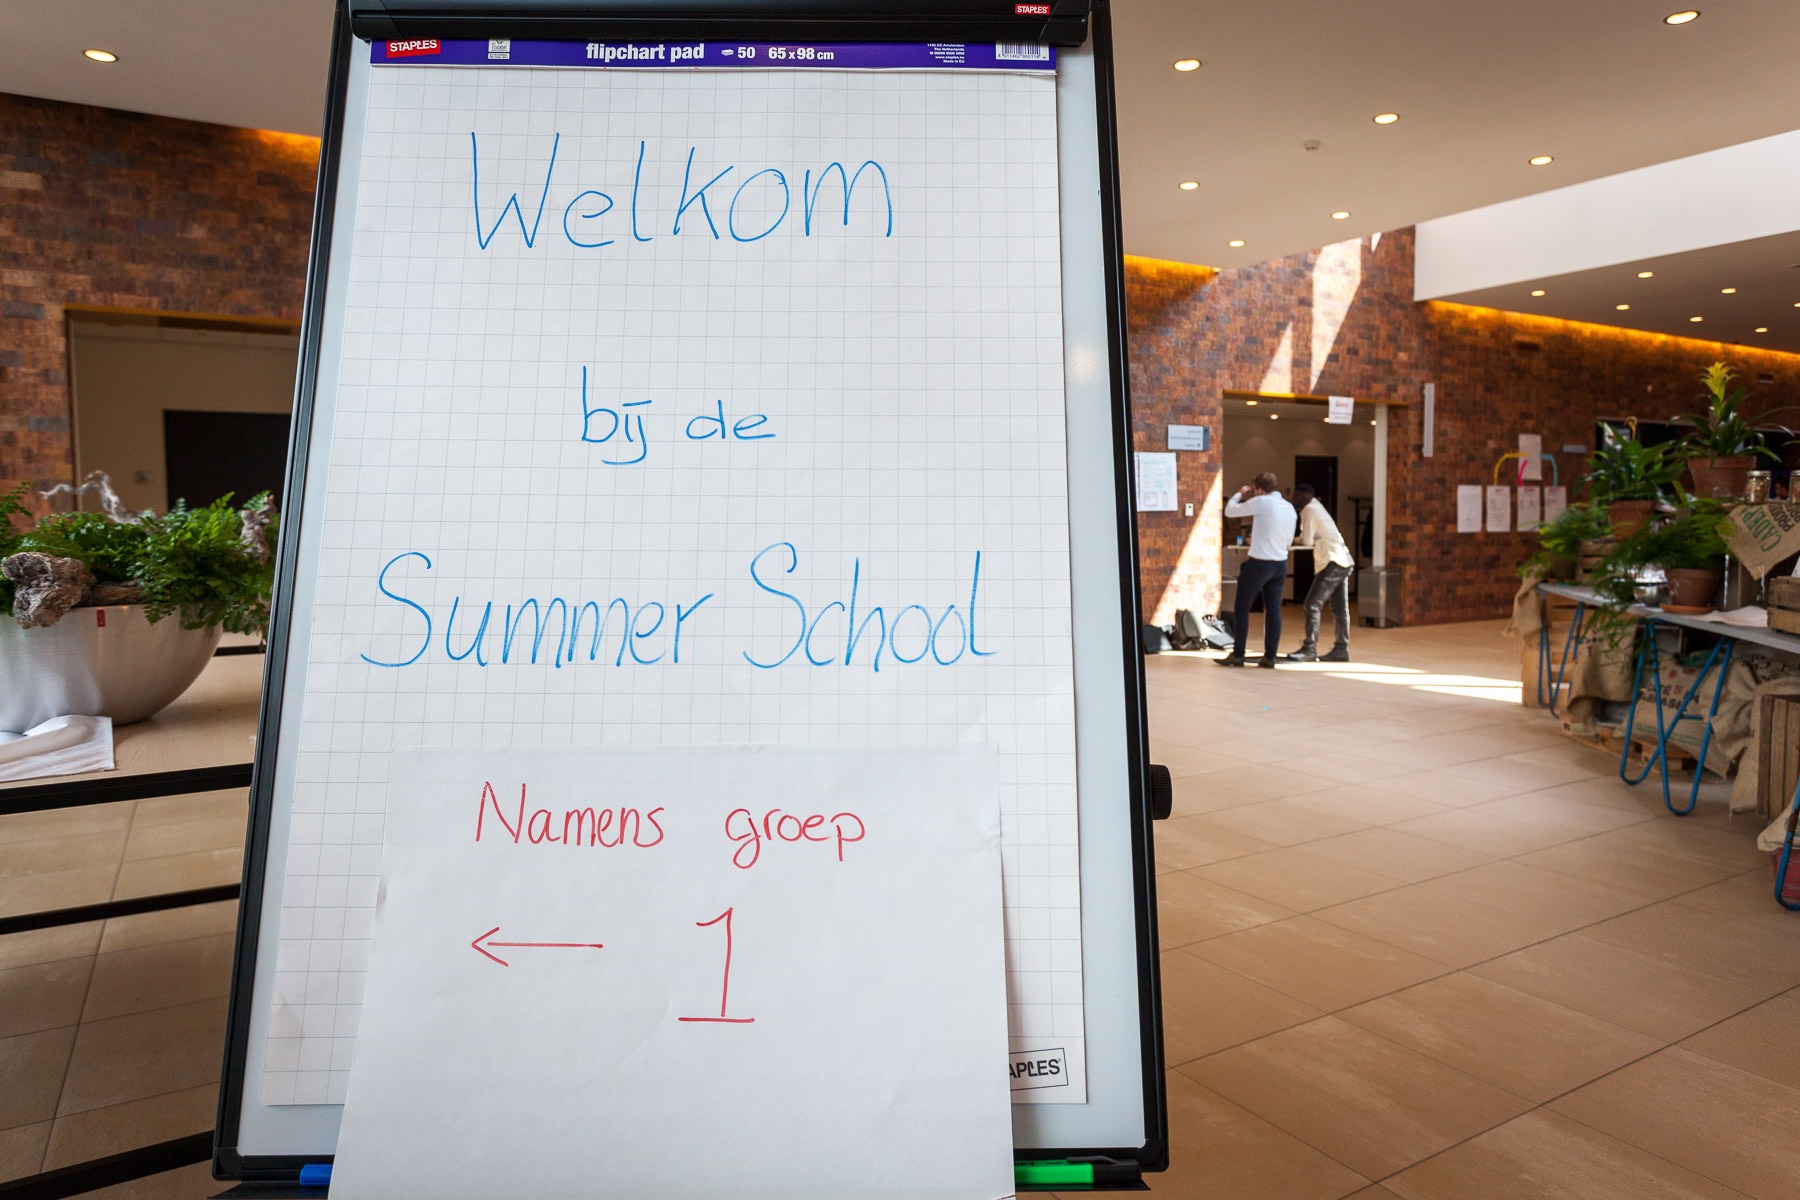 STAPLES
STAPLES
flipchart pad 50 65 x 98 cm
Welkom
bij de
Summer School
Namens groep
← 1
APLES